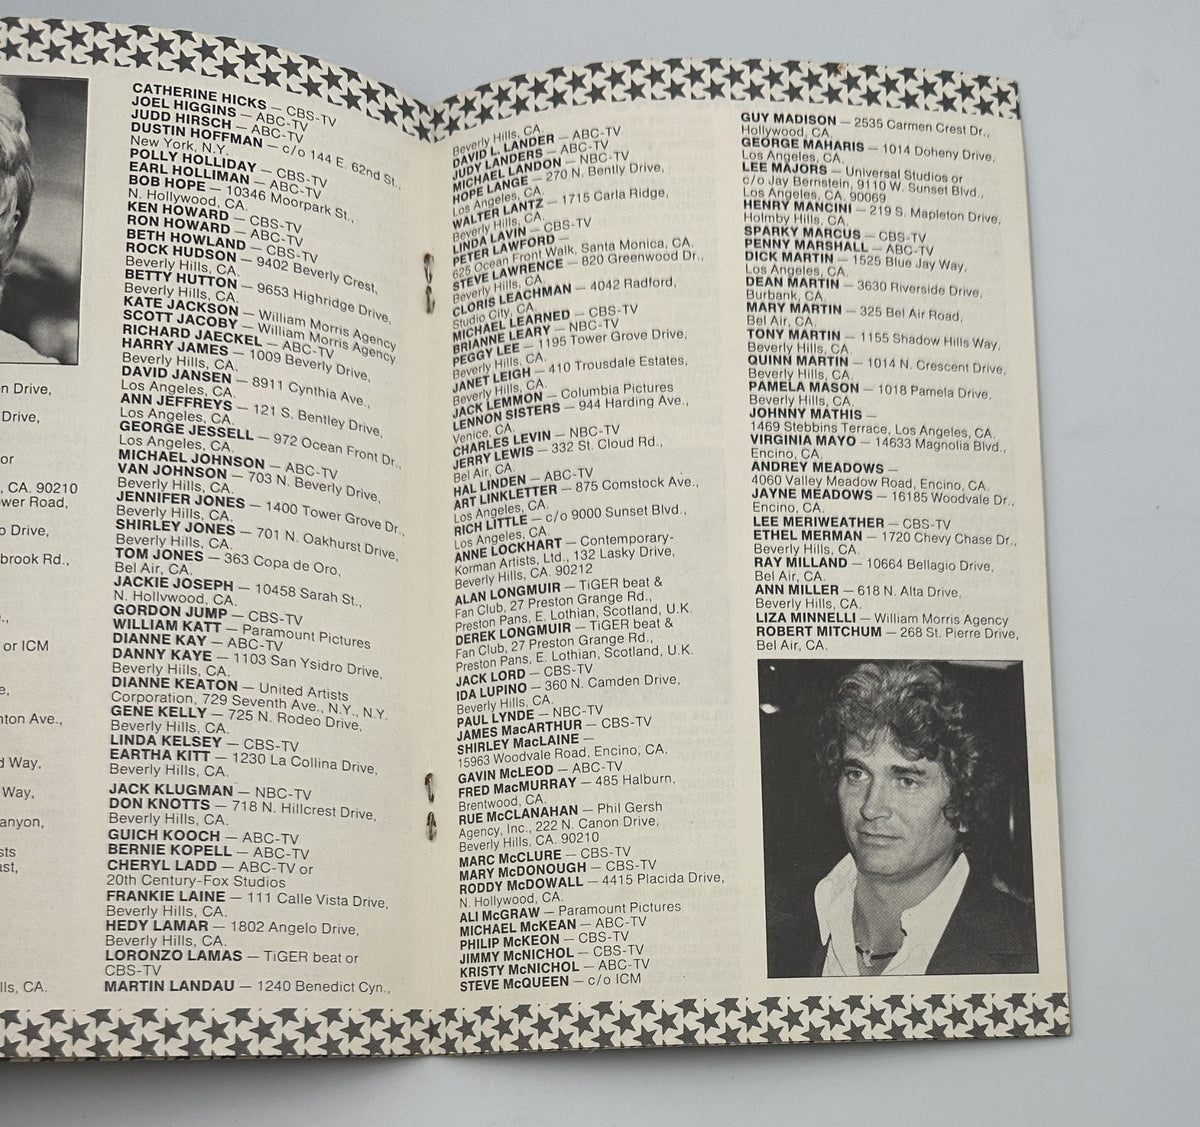 n Drive,
Drive,
or
, CA. 90210
wer Road,
o Drive,
brook Rd.,
.,
or ICM
e,
nton Ave.,
d Way,
Way,
anyon,
sts
ast,
lls, CA.
CATHERINE HICKS — CBS-TV
JOEL HIGGINS — ABC-TV
JUDD HIRSCH — ABC-TV
DUSTIN HOFFMAN — c/o 144 E. 62nd St.,
New York, N.Y.
POLLY HOLLIDAY — CBS-TV
EARL HOLLIMAN — ABC-TV
BOB HOPE — 10346 Moorpark St.,
N. Hollywood, CA.
KEN HOWARD — CBS-TV
RON HOWARD — ABC-TV
BETH HOWLAND — CBS-TV
ROCK HUDSON — 9402 Beverly Crest,
Beverly Hills, CA.
BETTY HUTTON — 9653 Highridge Drive,
Beverly Hills, CA.
KATE JACKSON — William Morris Agency
SCOTT JACOBY — William Morris Agency
RICHARD JAECKEL — ABC-TV
HARRY JAMES — 1009 Beverly Drive,
Beverly Hills, CA.
DAVID JANSEN — 8911 Cynthia Ave.,
Los Angeles, CA.
ANN JEFFREYS — 121 S. Bentley Drive,
Los Angeles, CA.
GEORGE JESSELL — 972 Ocean Front Dr.,
Los Angeles, CA.
MICHAEL JOHNSON — ABC-TV
VAN JOHNSON — 703 N. Beverly Drive,
Beverly Hills, CA.
JENNIFER JONES — 1400 Tower Grove Dr.,
Beverly Hills, CA.
SHIRLEY JONES — 701 N. Oakhurst Drive,
Beverly Hills, CA.
TOM JONES — 363 Copa de Oro,
Bel Air, CA.
JACKIE JOSEPH — 10458 Sarah St.,
N. Hollywood, CA.
GORDON JUMP — CBS-TV
WILLIAM KATT — Paramount Pictures
DIANNE KAY — ABC-TV
DANNY KAYE — 1103 San Ysidro Drive,
Beverly Hills, CA.
DIANNE KEATON — United Artists
Corporation, 729 Seventh Ave., N.Y., N.Y.
GENE KELLY — 725 N. Rodeo Drive,
Beverly Hills, CA.
LINDA KELSEY — CBS-TV
EARTHA KITT — 1230 La Collina Drive,
Beverly Hills, CA.
JACK KLUGMAN — NBC-TV
DON KNOTTS — 718 N. Hillcrest Drive,
Beverly Hills, CA.
GUICH KOOCH — ABC-TV
BERNIE KOPELL — ABC-TV
CHERYL LADD — ABC-TV or
20th Century-Fox Studios
FRANKIE LAINE — 111 Calle Vista Drive,
Beverly Hills, CA.
HEDY LAMAR — 1802 Angelo Drive,
Beverly Hills, CA.
LORONZO LAMAS — TiGER beat or
CBS-TV
MARTIN LANDAU — 1240 Benedict Cyn.,
Beverly Hills, CA.
DAVID L. LANDER — ABC-TV
JUDY LANDERS — ABC-TV
MICHAEL LANDON — NBC-TV
HOPE LANGE — 270 N. Bently Drive,
Los Angeles, CA.
WALTER LANTZ — 1715 Carla Ridge,
Beverly Hills, CA.
LINDA LAVIN — CBS-TV
PETER LAWFORD —
625 Ocean Front Walk, Santa Monica, CA.
STEVE LAWRENCE — 820 Greenwood Dr.,
Beverly Hills, CA.
CLORIS LEACHMAN — 4042 Radford,
Studio City, CA.
MICHAEL LEARNED — CBS-TV
BRIANNE LEARY — NBC-TV
PEGGY LEE — 1195 Tower Grove Drive,
Beverly Hills, CA.
JANET LEIGH — 410 Trousdale Estates,
Beverly Hills, CA.
JACK LEMMON — Columbia Pictures
LENNON SISTERS — 944 Harding Ave.,
Venice, CA.
CHARLES LEVIN — NBC-TV
JERRY LEWIS — 332 St. Cloud Rd.,
Bel Air, CA.
HAL LINDEN — ABC-TV
ART LINKLETTER — 875 Comstock Ave.,
Los Angeles, CA.
RICH LITTLE — c/o 9000 Sunset Blvd.,
Los Angeles, CA.
ANNE LOCKHART — Contemporary-
Korman Artists, Ltd., 132 Lasky Drive,
Beverly Hills, CA. 90212
ALAN LONGMUIR — TiGER beat &
Fan Club, 27 Preston Grange Rd.,
Preston Pans, E. Lothian, Scotland, U.K.
DEREK LONGMUIR — TiGER beat &
Fan Club, 27 Preston Grange Rd.,
Preston Pans, E. Lothian, Scotland, U.K.
JACK LORD — CBS-TV
IDA LUPINO — 360 N. Camden Drive,
Beverly Hills, CA.
PAUL LYNDE — NBC-TV
JAMES MacARTHUR — CBS-TV
SHIRLEY MacLAINE —
15963 Woodvale Road, Encino, CA.
GAVIN McLEOD — ABC-TV
FRED MacMURRAY — 485 Halburn,
Brentwood, CA.
RUE McCLANAHAN — Phil Gersh
Agency, Inc., 222 N. Canon Drive,
Beverly Hills, CA. 90210
MARC McCLURE — CBS-TV
MARY McDONOUGH — CBS-TV
RODDY McDOWALL — 4415 Placida Drive,
N. Hollywood, CA.
ALI McGRAW — Paramount Pictures
MICHAEL McKEAN — ABC-TV
PHILIP McKEON — CBS-TV
JIMMY McNICHOL — CBS-TV
KRISTY McNICHOL — ABC-TV
STEVE McQUEEN — c/o ICM
GUY MADISON — 2535 Carmen Crest Dr.,
Hollywood, CA.
GEORGE MAHARIS — 1014 Doheny Drive,
Los Angeles, CA.
LEE MAJORS — Universal Studios or
c/o Jay Bernstein, 9110 W. Sunset Blvd.,
Los Angeles, CA. 90069
HENRY MANCINI — 219 S. Mapleton Drive,
Holmby Hills, CA.
SPARKY MARCUS — CBS-TV
PENNY MARSHALL — ABC-TV
DICK MARTIN — 1525 Blue Jay Way,
Los Angeles, CA.
DEAN MARTIN — 3630 Riverside Drive,
Burbank, CA.
MARY MARTIN — 325 Bel Air Road,
Bel Air, CA.
TONY MARTIN — 1155 Shadow Hills Way,
Beverly Hills, CA.
QUINN MARTIN — 1014 N. Crescent Drive,
Beverly Hills, CA.
PAMELA MASON — 1018 Pamela Drive,
Beverly Hills, CA.
JOHNNY MATHIS —
1469 Stebbins Terrace, Los Angeles, CA.
VIRGINIA MAYO — 14633 Magnolia Blvd.,
Encino, CA.
ANDREY MEADOWS —
4060 Valley Meadow Road, Encino, CA.
JAYNE MEADOWS — 16185 Woodvale Dr.,
Encino, CA.
LEE MERIWEATHER — CBS-TV
ETHEL MERMAN — 1720 Chevy Chase Dr.,
Beverly Hills, CA.
RAY MILLAND — 10664 Bellagio Drive,
Bel Air, CA.
ANN MILLER — 618 N. Alta Drive,
Beverly Hills, CA.
LIZA MINNELLI — William Morris Agency
ROBERT MITCHUM — 268 St. Pierre Drive,
Bel Air, CA.